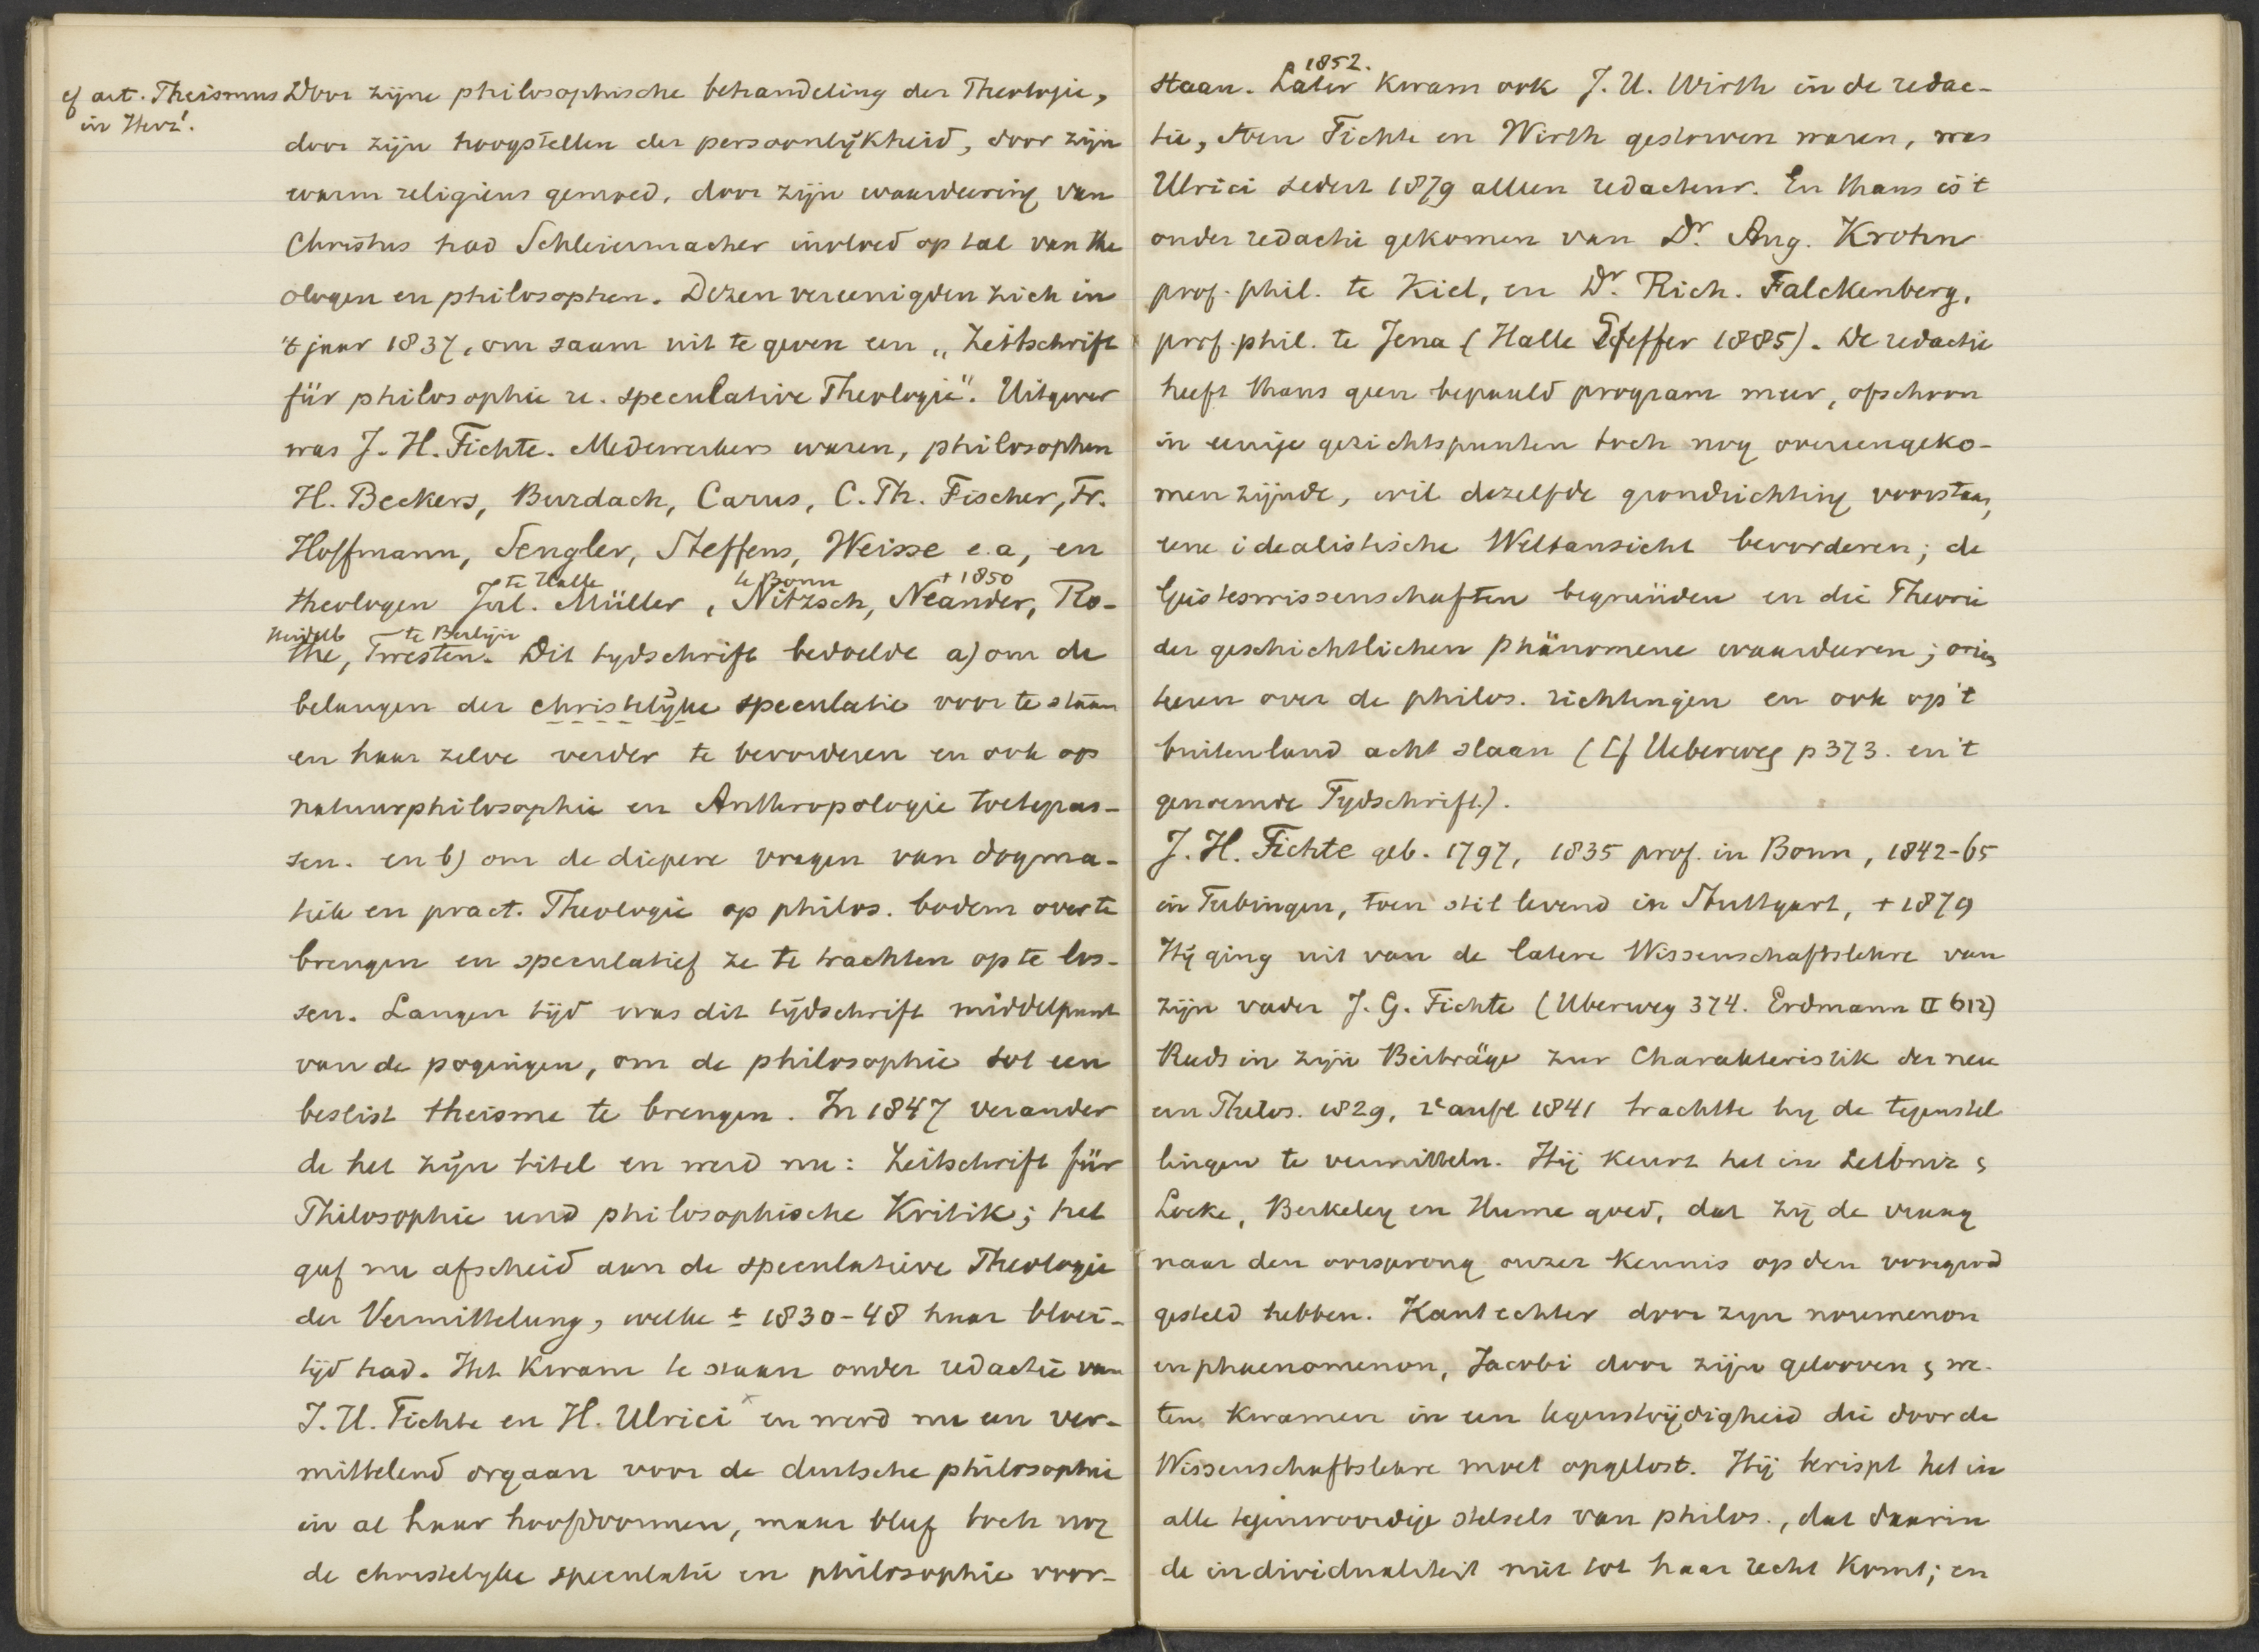 cf art. Theismus
in Herz².
Door zijne philosophische behandeling der Theologie,
door zijn hoogstellen der persoonlijkheid, door zijn
warm religieus gemoed, door zijn waardeering van
Christus had Schleiermacher invloed op tal van the
ologen en philosophen. Dezen vereenigden zich in
't jaar 1837, om saam uit te geven een „Zeitschrift
für philosophie u. speculative Theologie". Uitgever
was J. H. Fichte. Medewerkers waren, philosophen
H. Beckers, Burdach, Carus, C. Th. Fischer, Fr.
Hoffmann, Sengler, Steffens, Weisse e.a, en
te Halle te Bonn † 1850
theologen Jul. Müller, Nitzsch, Neander, Ro-
Heidelb te Berlijn
the, Twesten. Dit tydschrift bedoelde a) om de
belangen der christelijke speculatie voor te staan
en haar zelve verder te bevorderen en ook op
natuurphilosophie en Anthropologie toetepas-
sen. en b) om de diepere vragen van dogma-
tiek en pract. Theologie op philos. bodem over te
brengen en speculatief ze te trachten op te los-
sen. Langen tijd was dit tijdschrift middelpunt
van de pogingen, om de philosophie tot een
beslist theisme te brengen. In 1847 verander
de het zijn titel en werd nu: Zeitschrift für
Philosophie und philosophische Kritik; het
gaf nu afscheid aan de speculatieve Theologie
der Vermittelung, welke ± 1830-48 haar bloei-
tijd had. Het kwam te staan onder redactie van
J. H. Fichte en H. Ulrici x en werd nu een ver-
mittelend orgaan voor de duitsche philosophie
in al haar hoofdvormen, maar bleef toch nog
de christelyke speculatie en philosophie voor-
staan. Later 1852. kwam ook J. U. Wirth in de redac-
tie, toen Fichte en Wirth gestorven waren, was
Ulrici sedert 1879 alleen redacteur. En thans is 't
onder redactie gekomen van Dr. Aug. Krohn
prof. phil. te Kiel, en Dr. Rich. Falckenberg,
prof. phil. te Jena (Halle Pfeffer 1885). De redactie
heeft thans geen bepaald program meer, ofschoon
in eenige gezichtspunten toch nog overeengeko-
men zijnde, wil dezelfde grondrichting voorstaan,
eene idealistische Weltansicht bevorderen; de
Geisteswissenschaften begründen en die Theorie
der geschichtlichen Phänomene waardeeren; orien
teeren over de philos. richtingen en ook op 't
buitenland acht slaan (Cf Ueberweg p 373. en 't
genoemde Tydschrift.).
J. H. Fichte geb. 1797, 1835 prof. in Bonn, 1842-65
in Tubingen, toen stil levend in Stuttgart, † 1879
Hij ging uit van de latere Wissenschaftslehre van
zijn vader J. G. Fichte (Uberweg 374. Erdmann II 612)
Reeds in zijn Beiträge zur Charakteristik der neu
ern Philos. 1829, 2e aufl 1841 trachtte hy de tegenstel
lingen te vermitteln. Hij keurt het in Leibniz &
Locke, Berkeley en Hume goed, dat zij de vraag
naar den oorsprong onzer kennis op den voorgrond
gesteld hebben. Kant echter door zyn noumenon
en phaenomenon, Jacobi door zijn gelooven & we-
ten kwamen in een tegenstrijdigheid die door de
Wissenschaftslehre moet opgelost. Hij berispt het in
alle tegenwoordige stelsels van philos., dat daarin
de individualiteit niet tot haar recht komt; en